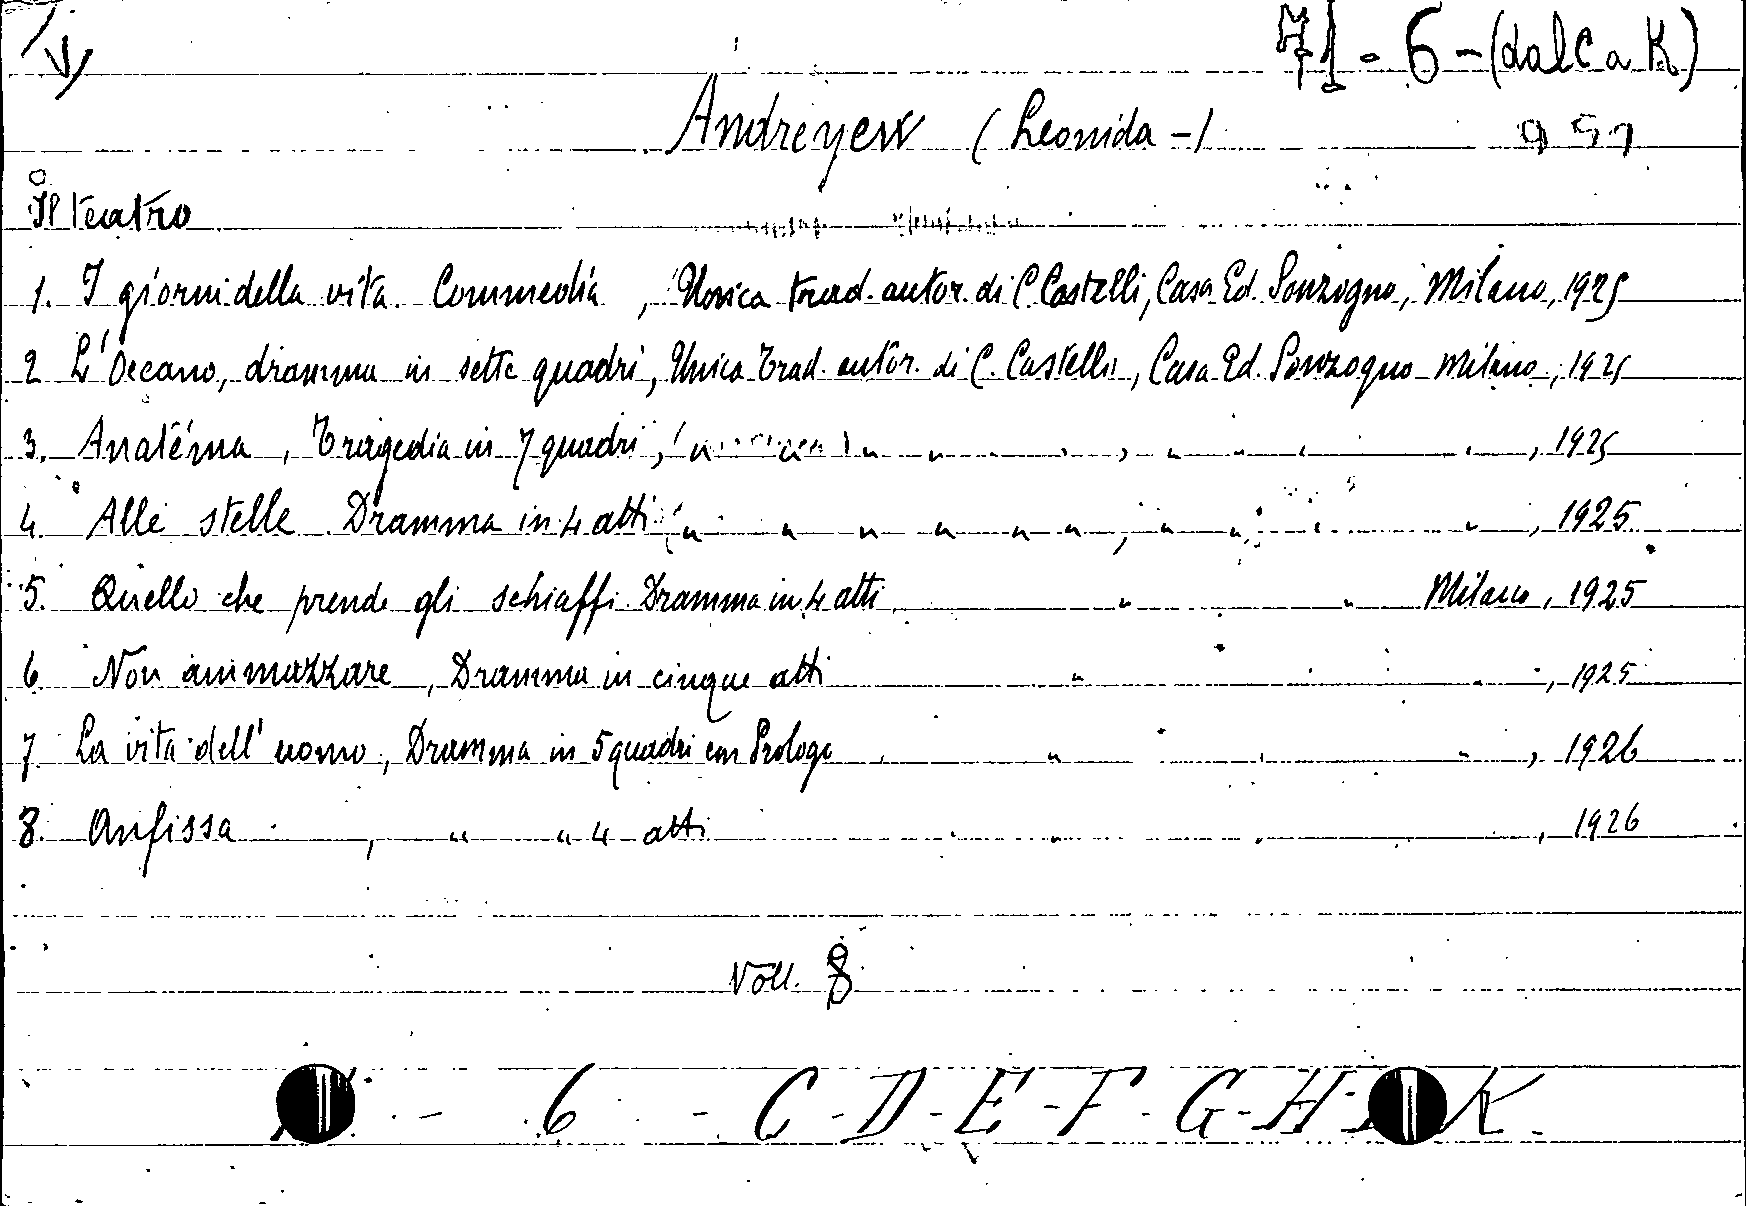 71 - 6 - (dal C a K)
Andreyew (Leonida -)
Il teatro
1. I giorni della vita. Commedia, Unica trad. autor. di C. Castelli, Casa Ed. Sonzogno, Milano, 1925
2 L'Oceano, dramma in sette quadri, Unica trad. autor. di C. Castelli, Casa Ed. Sonzogno Milano, 1925
3. Anatéma, Tragedia in 7 quadri, " " " , " " " " , 1925
4. Alle stelle Dramma in 4 atti " " " " " " , " " " " , 1925
5. Quello che prende gli schiaffi. Dramma in 4 atti " " Milano, 1925
6 Non ammazzare, Dramma in cinque atti " " " , 1925
7 La vita dell'uomo, Dramma in 5 quadri con Prologo " " " , 1926
8. Anfissa , " " 4 atti " " , 1926
Voll. 8
- 6 - C - D - E - F - G - H - K.